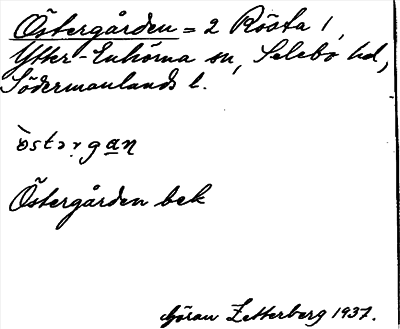 Östergården = 2 Rösta 1,
Ytter-Enhörna sn, Selebo hd,
Södermanlands l.
östərgan
Östergården bek
Göran Zetterberg 1937.